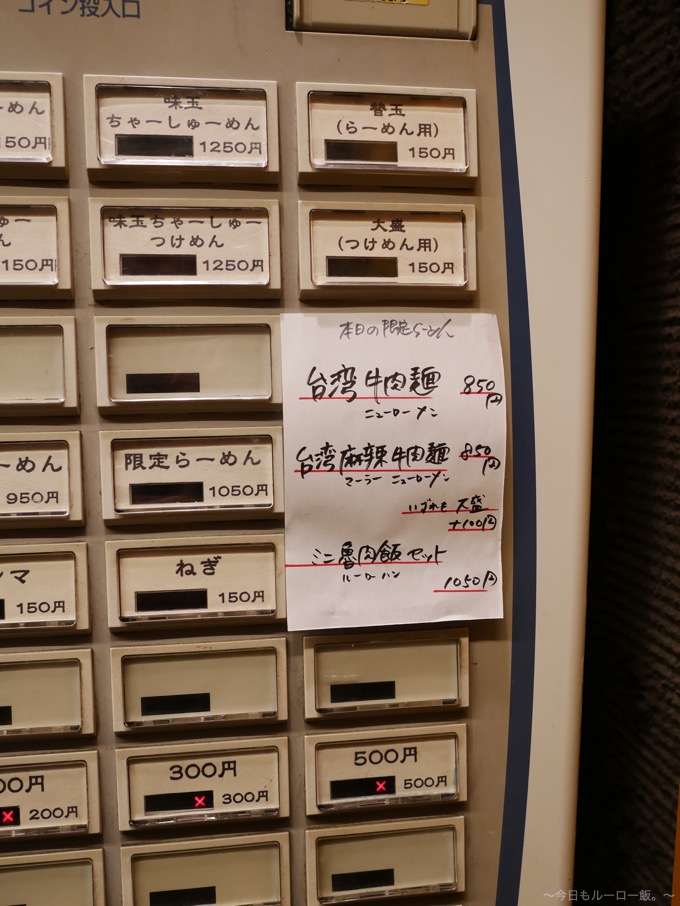 コイン投入口
めん
150円
味玉
ちゃーしゅーめん
1250円
替玉
(らーめん用)
150円
ゅー
ん
150円
味玉ちゃーしゅー
つけめん
1250円
大盛
(つけめん用)
150円
本日の限定らーめん
台湾牛肉麺 850円
ニューローメン
台湾麻辣牛肉麺 850円
マーラー ニューローメン
いずれも 大盛
+100円
ミニ魯肉飯セット
ルーローハン
1050円
ーめん
950円
限定らーめん
1050円
マ
150円
ねぎ
150円
00円
200円
300円
300円
500円
500円
〜今日もルーロー飯。〜